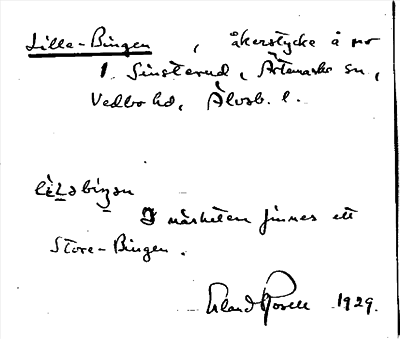 Lilla-Bingen , åkerstycke å no
1 Sinsterud, Ärtemarks sn,
Vedbo hd, Älvsb. l.
lìlabiŋən
I närheten finnes ett
Stora-Bingen.
Erland Rosell 1929.